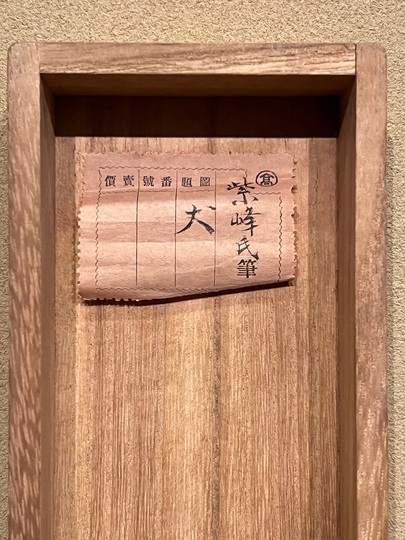 髙
紫峰氏筆
圖題
犬
番號
賣價